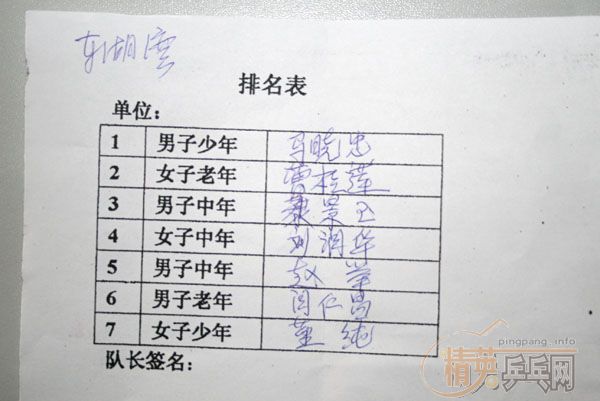 东湖湾
排名表
单位：
1 男子少年 马晓忠
2 女子老年 曹桂莲
3 男子中年 景玉
4 女子中年 刘润华
5 男子中年 赵荣
6 男子老年 闫仁昌
7 女子少年 董纯
队长签名：
pingpang.info
精英乒乓网